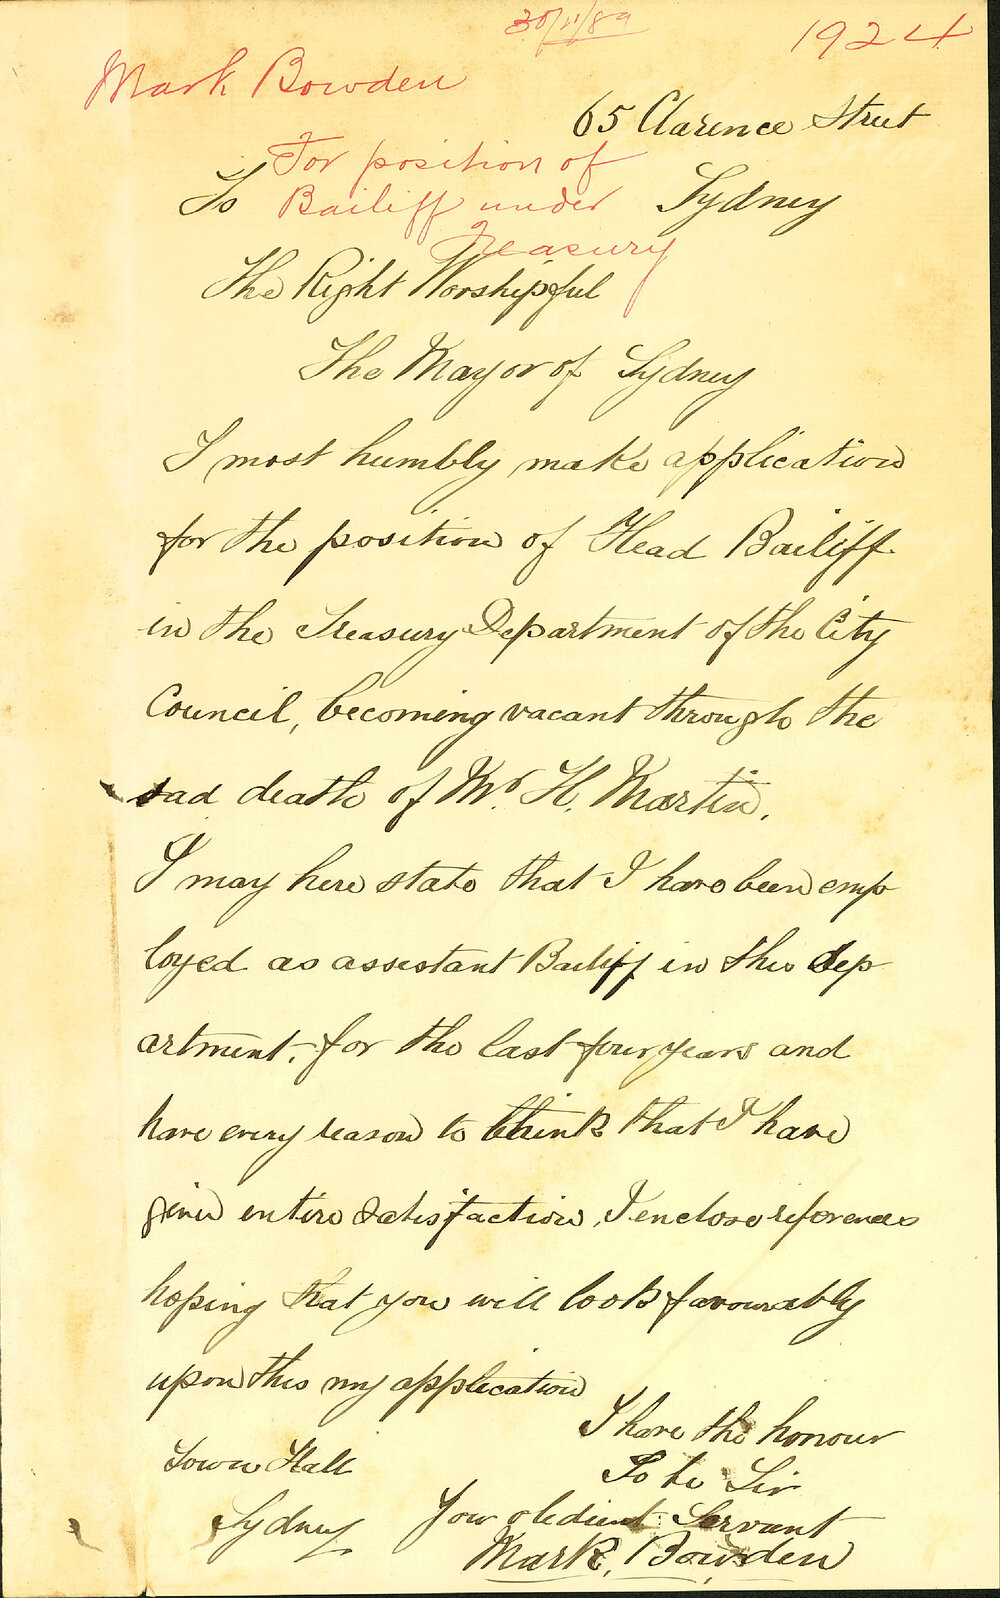 30/11/89
1924
Mark Bowden
65 Clarence Street
For position of
To Bailiff under Sydney
Treasury
The Right Worshipful
The Mayor of Sydney
I most humbly make application
for the position of Head Bailiff
in the Treasury Department of the City
Council, becoming vacant through the
sad death of Mr. H. Martin.
I may here state that I have been emp
loyed as assistant Bailiff in this dep
artment. for the last four years and
have every reason to think that I have
given entire satisfaction, I enclose references
hoping that you will look favourably
upon this my application
I have the honour
Town Hall
To be Sir
Sydney
Your obedient Servant
Mark, Bowden